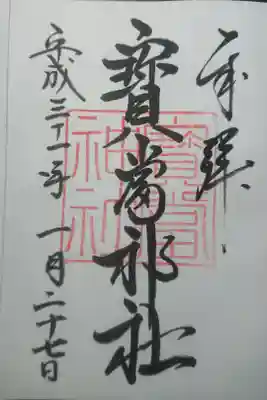 奉拝
寳當神社
平成三十一年一月二十七日
寳當神社